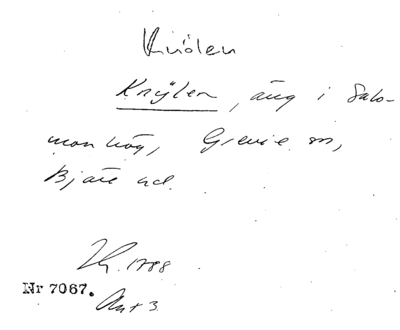 Knölen
Knylen, äng i Salo-
monhög, Grevie sn,
Bjäre hd.
1788
Nr 7067.
Akt 3.